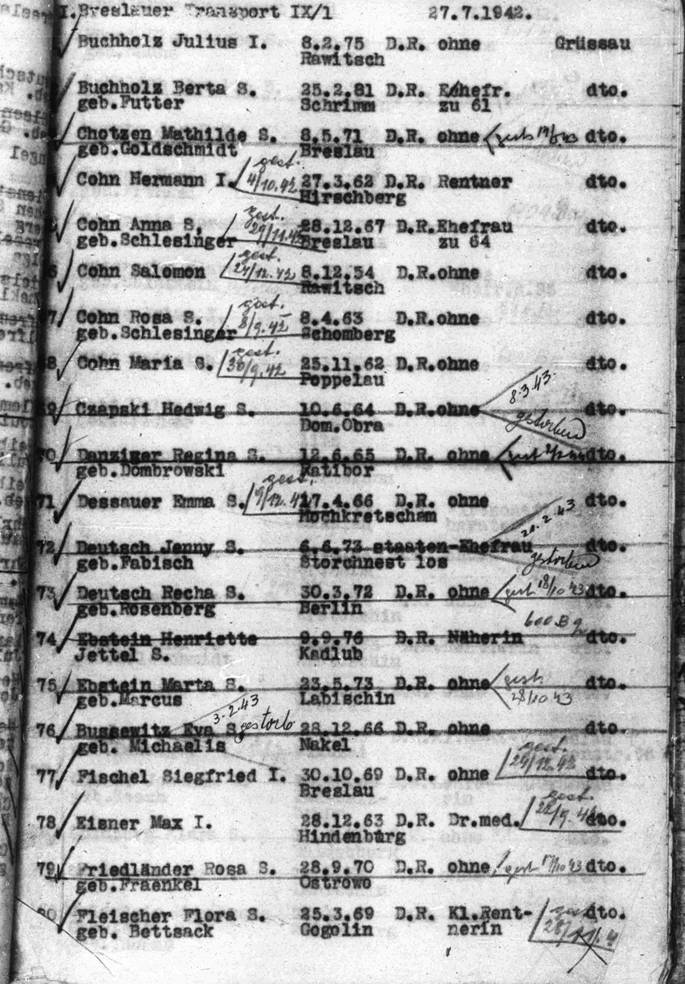 I. Breslauer Transport IX/1 27.7.1942.
Buchholz Julius I. 8.2.75 D.R. ohne Grüssau
Rawitsch
Buchholz Berta S. 25.2.81 D.R. Ehefr. dto.
geb.Futter Schrimm zu 61
Chotzen Mathilde S. 8.5.71 D.R. ohne dto.
geb.Goldschmidt Breslau
gest.
Cohn Hermann I. 4/10.42 27.3.62 D.R. Rentner dto.
Hirschberg
gest.
Cohn Anna S. 29/11.42 28.12.67 D.R.Ehefrau dto.
geb.Schlesinger Breslau zu 64
gest.
Cohn Salomon 27/12.42 8.12.54 D.R.ohne dto.
Rawitsch
gest.
Cohn Rosa S. 8/9.42 8.4.63 D.R.ohne dto.
geb.Schlesinger Schomberg
gest.
Cohn Maria S. 30/9.42 25.11.62 D.R.ohne dto.
Poppelau
8.3.43
Czapski Hedwig S. 10.6.64 D.R.ohne dto.
Dom.Obra gestorben
70 Danziger Regina S. 12.6.65 D.R. ohne dto.
geb.Dombrowski Ratibor
gest.
71 Dessauer Emma S. 17.4.66 D.R. ohne dto.
Hochkretscham
72 Deutsch Jenny S. 6.6.73 staaten-Ehefrau dto.
geb.Fabisch Storchnest los gestorben
73 Deutsch Recha S. 30.3.72 D.R. ohne gest. 18/10 43 dto.
geb.Rosenberg Berlin
74 Ebstein Henriette 9.9.76 D.R. Näherin dto.
Jettel S. Kadlub
75 Ebstein Marta S. 23.5.73 D.R. ohne gest. dto.
geb.Marcus Labischin 28/10 43
3.2.43
76 Bussewitz Eva S. gestorb 28.12.66 D.R. ohne dto.
geb. Michaelis Nakel
gest.
77 Fischel Siegfried I. 30.10.69 D.R. ohne 24/12.42 dto.
Breslau
gest.
78 Eisner Max I. 28.12.63 D.R. Dr.med. dto.
Hindenburg
79 Friedländer Rosa S. 28.9.70 D.R. ohne dto.
geb.Fraenkel Ostrowo
Fleischer Flora S. 25.3.69 D.R. Kl.Rent- gest. dto.
geb. Bettsack Gogolin nerin